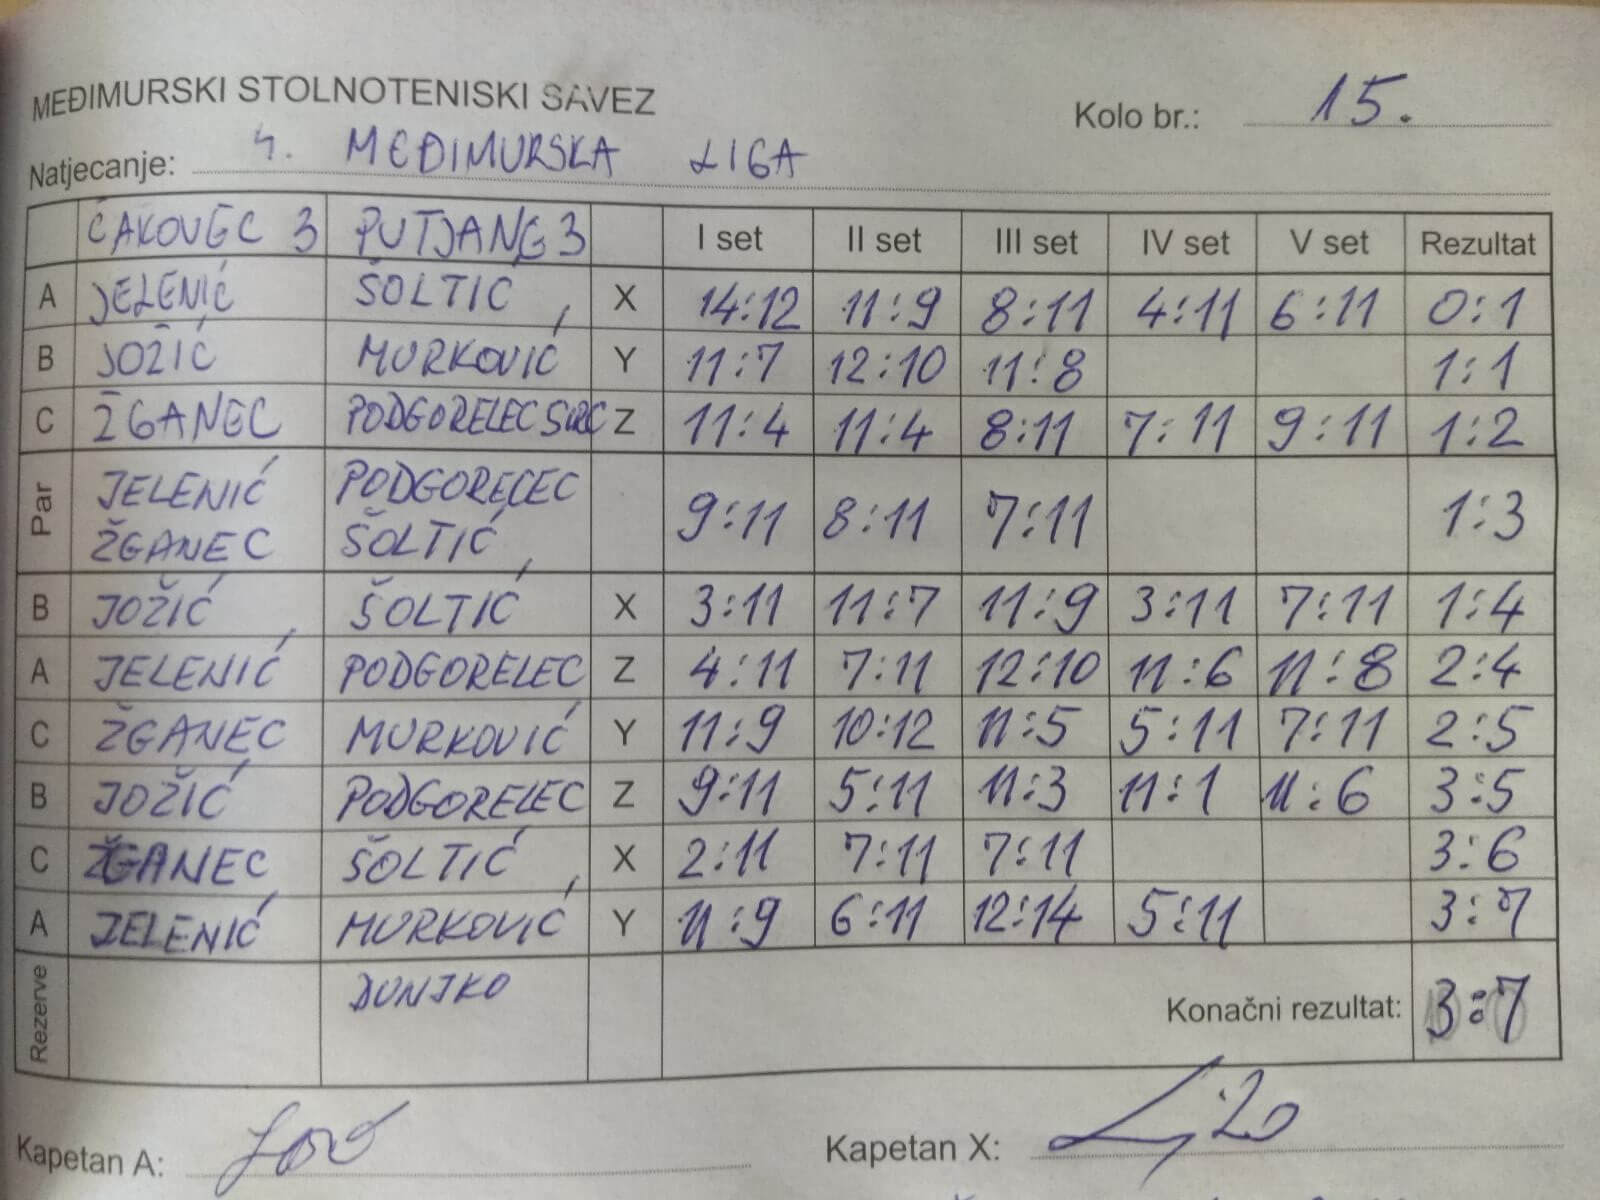 MEĐIMURSKI STOLNOTENISKI SAVEZ
Kolo br.: 15.
Natjecanje: 4. MEĐIMURSKA LIGA
ČAKOVEC 3 PUTJANE 3 I set II set III set IV set V set Rezultat
A JELENIĆ ŠOLTIĆ X 14:12 11:9 8:11 4:11 6:11 0:1
B JOŽIĆ MURKOVIĆ Y 11:7 12:10 11:8 1:1
C ŽGANEC PODGORELEC Z 11:4 11:4 8:11 7:11 9:11 1:2
Par JELENIĆ PODGORELEC 9:11 8:11 7:11 1:3
ŽGANEC ŠOLTIĆ
B JOŽIĆ ŠOLTIĆ X 3:11 11:7 11:9 3:11 7:11 1:4
A JELENIĆ PODGORELEC Z 4:11 7:11 12:10 11:6 11:8 2:4
C ŽGANEC MURKOVIĆ Y 11:9 10:12 11:5 5:11 7:11 2:5
B JOŽIĆ PODGORELEC Z 9:11 5:11 11:3 11:1 11:6 3:5
C ŽGANEC ŠOLTIĆ X 2:11 7:11 7:11 3:6
A JELENIĆ MURKOVIĆ Y 11:9 6:11 12:14 5:11 3:7
Rezerve DUNJKO Konačni rezultat: 3:7
Kapetan A: Kapetan X: